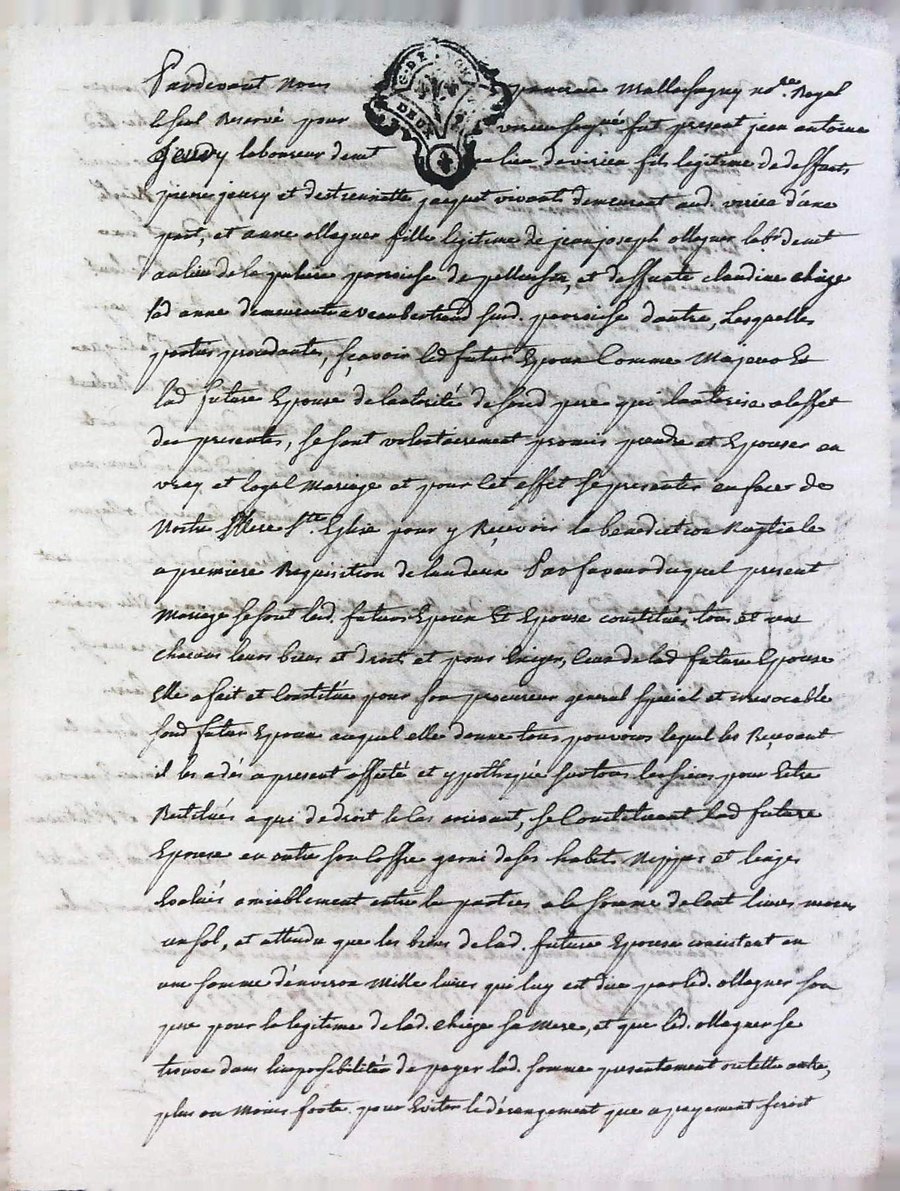 Pardevant Nous Mallossagny no.re Royal
le seul Reservé pour virieu soq.né fut present jean antoine
jeury laboureur demt au lieu de virieu fils legitime de deffunts
pierre jeury et d'estiennette jacquet vivants demeurant aud. virieu d'une
part, et anne ollagner fille legitime de jean joseph ollagner lab.r demt
au lieu de la paroisse de , et deffunte claudine chize
lad anne demeurante a sur d. paroisse d'autre, Lesquelles
parties procedantes, sçavoir led futur Epoux Comme Majeur Et
lad future Epouse de lautorité de sond pere qui lautorise a leffet
des presentes, se sont volontairement promis prendre et Epouser en
vray et loyal Mariage et pour cet effet se presenter en face de
Nostre Mere S.te Eglise pour y Reçevoir la benediction Nuptiale
a premiere Requisition de l'un deux En faveur duquel present
Mariage se sont led. futurs Epoux Et Epouse constitués tous et un
chacuns leurs biens et droits et pour Exiger, Ceux de lad future Epouse
Elle a fait et Constitué pour son procureur general special et irrevocable
sond futur Epoux auquel elle donne tous pouvoirs lequel les Reçevant
il les a dés a present affecté et ypothequé sur tous les siens pour Estre
Restitués a qui de droit le cas avenant, se Constituant lad future
Epouse en outre son Coffre garni de ses habits Nippes et linges
Evalués amiablement entre les parties a la somme de Cent livres moins
un sol, et attendu que les biens de lad. future Epouse consistent en
une somme d'environ Mille livres qui luy est due par led. ollagner son
pere pour la legitime de lad. chize sa Mere, et que led. ollagner se
trouve dans limpossibilité de payer lad. somme presentement ou telle autre,
plus ou Moins forte pour Eviter le dérangement que a payement feroit